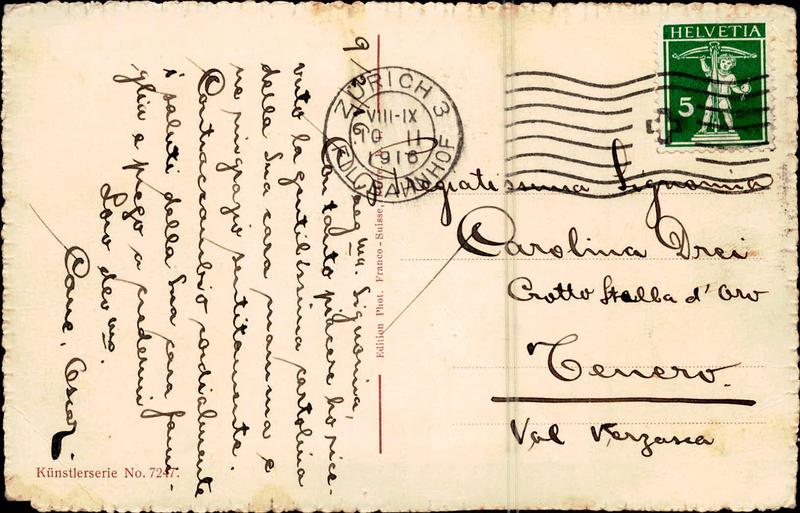 HELVETIA
5
ZÜRICH 3
VIII-IX
10 II
1916
FIL.BAHNHOF
Pregiatissima Signorina
Carolina Drei
Grotto Stella d'Oro
Tenero.
Val Verzasca
Preg ma. Signorina,
Con tanto piacere ho rice-
vuto la gentilissima cartolina
della Sua cara mamma e
ne ringrazio sentitamente.
Contraccambio cordialmente
i saluti della Sua cara fami-
glia e prego a credermi
Loro dev mo.
Edition Phot. Franco-Suisse,
Künstlerserie No. 7247.